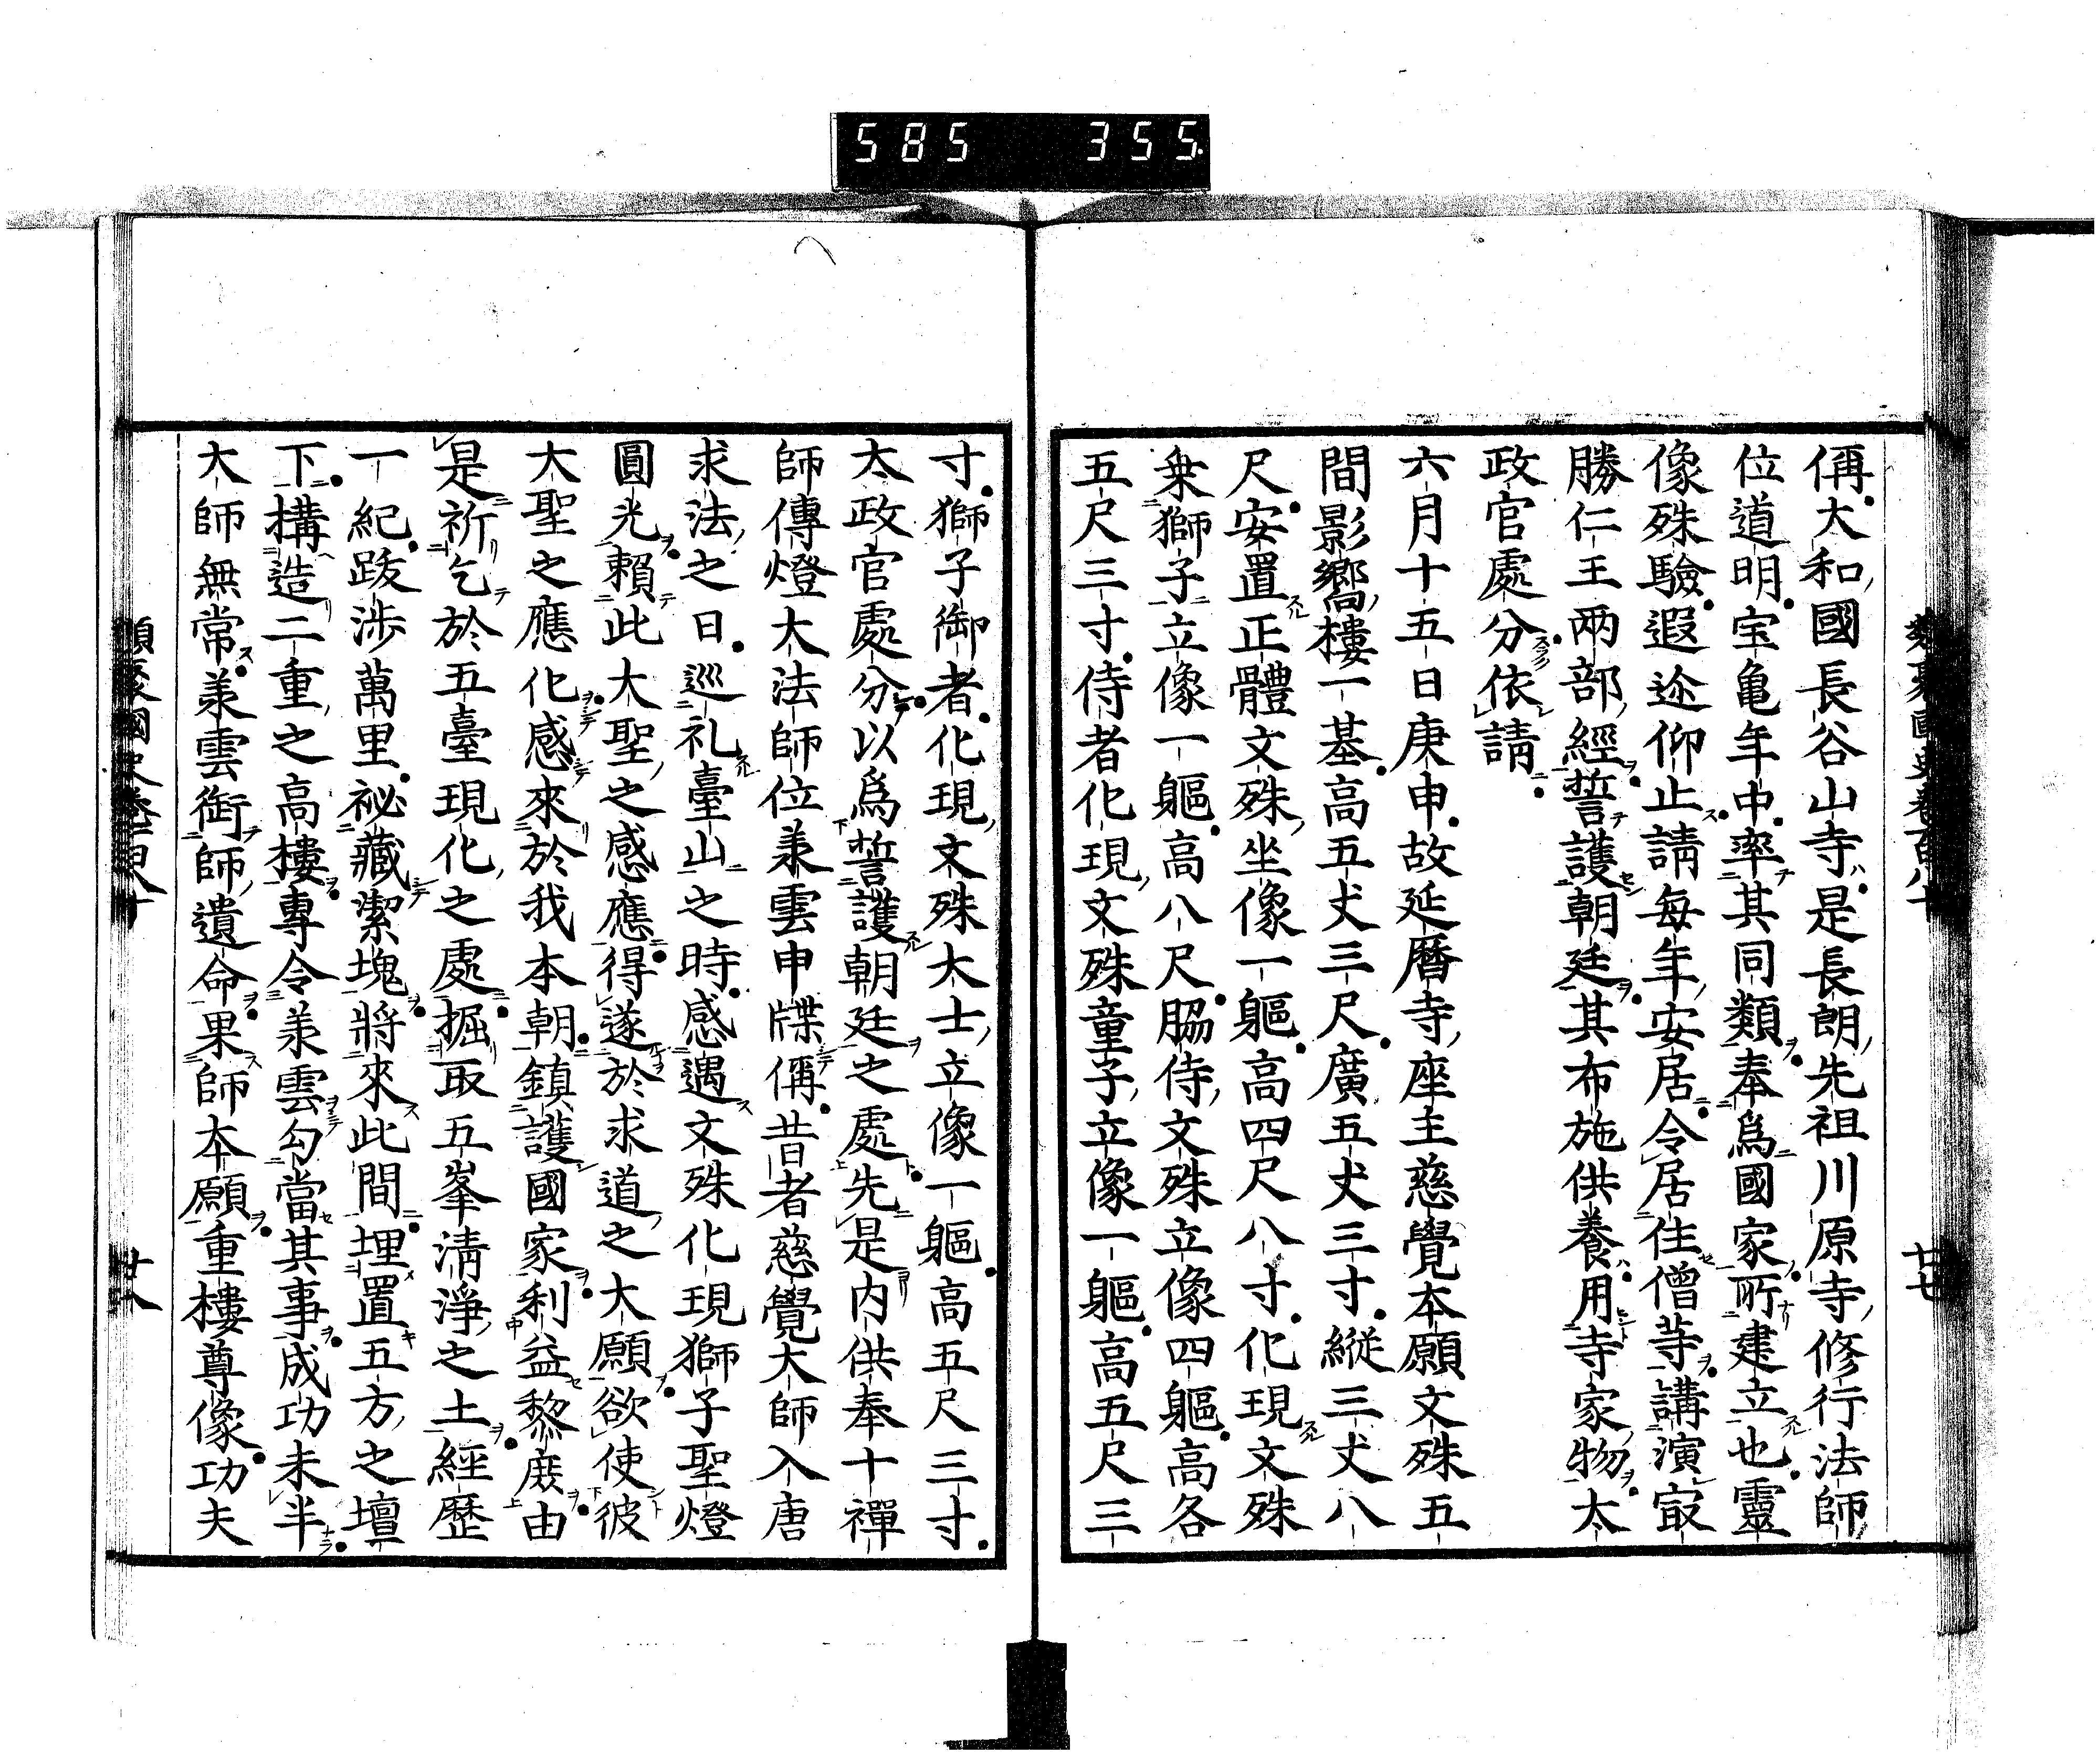 585 355
偁大和國長谷山寺是長朗先祖川原寺修行法師
位道明宝亀年中率其同類奉爲國家所建立也靈
像殊驗遐迩仰止請每年安居令居住僧等講演㝡
勝仁王兩部經誓護朝廷其布施供養用寺家物太
政官處分依請
六月十五日庚申故延曆寺座主慈覺本願文殊五
間影嚮樓一基高五丈三尺廣五丈三寸縱三丈八
尺安置正體文殊坐像一軀高四尺八寸化現文殊
乗獅子立像一軀高八尺脇侍文殊立像四軀高各
五尺三寸侍者化現文殊童子立像一軀高五尺三
寸獅子御者化現文殊大士立像一軀高五尺三寸
太政官處分以爲誓護朝廷之處先是内供奉十禪
師傳燈大法師位羕雲申牒偁昔者慈覺大師入唐
求法之日巡礼臺山之時感遇文殊化現獅子聖燈
圓光賴此大聖之感應得遂於求道之大願欲使彼
大聖之應化感來於我本朝鎮護國家利益黎庻由
是祈乞於五臺現化之處掘取五峯淸淨之土經歷
一紀跋涉萬里祕藏潔塊將來此間埋置五方之壇
下構造二重之高樓專令羕雲勾當其事成功未半
大師無常羕雲銜師遺命果師本願重樓尊像功夫
類聚國史卷百八十
廿七
類聚國史卷百八十
廿八